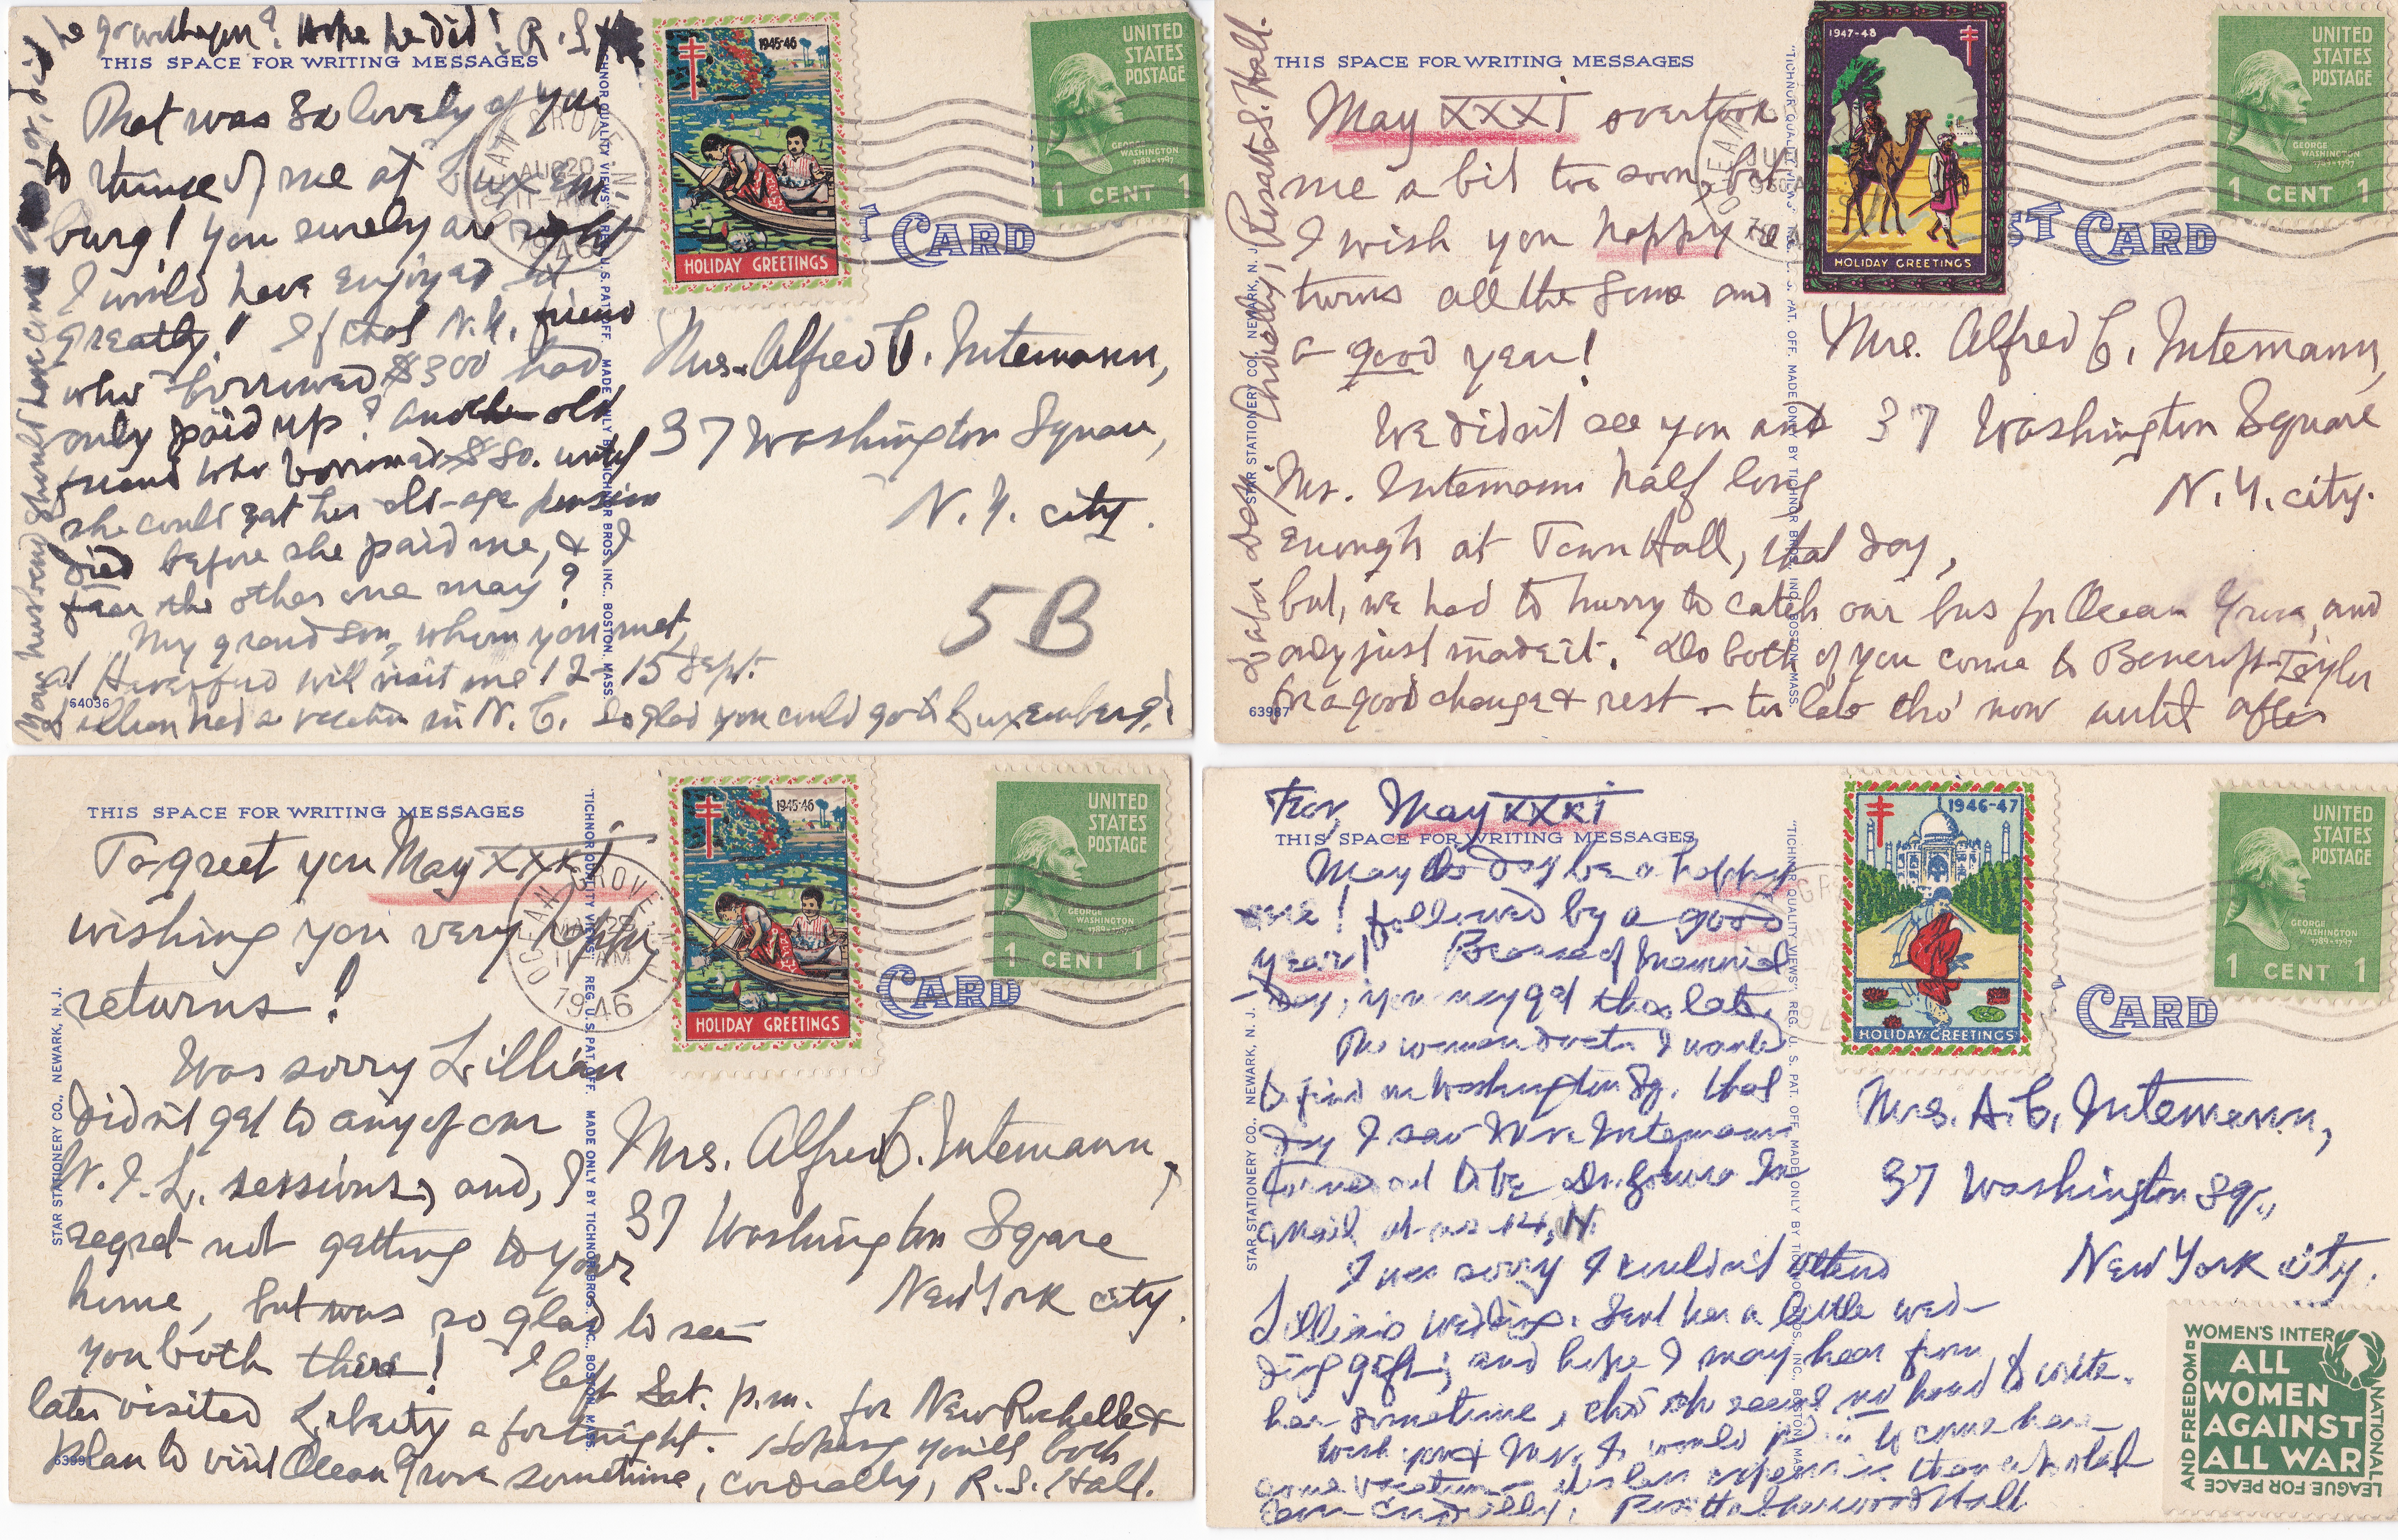 he grandson? Hope he did! R.S.H
THIS SPACE FOR WRITING MESSAGES
That was so lovely of you
to think of me at Luxem
burg! You surely are right
I would have enjoyed it
greatly! If that N.Y. friend
who borrowed $300 had
only paid up? Another old
friend who borrowed $80. until
she could get her old-age pension
died before she paid me, & I
fear the other one may?
My grandson, whom you met
at Haverford will visit me 12-15 Sept.
Lillian had a vacation in N.C. So glad you could go to Luxemberg!
Your husband should have come
64036
"TICHNOR QUALITY VIEWS" REG. U.S. PAT. OFF. MADE ONLY BY TICHNOR BROS. INC., BOSTON, MASS.
OCEAN GROVE N.J.
AUG 20
11-AM
1946
1945-46
HOLIDAY GREETINGS
UNITED
STATES
POSTAGE
GEORGE
WASHINGTON
1789-1797
1 CENT 1
T CARD
Mrs. Alfred C. Intemann,
37 Washington Square,
N.Y. city.
5B
THIS SPACE FOR WRITING MESSAGES
May XXXI overtook
me a bit too soon, but
I wish you happy re
turns all the same and
a good year!
We didn't see you and
Mr. Intemann half long
enough at Town Hall, that day,
but, we had to hurry to catch our bus for Ocean Grove, and
only just made it. Do both of you come to Bancroft-Taylor
for a good change & rest - too late tho' now until after
Labor Day. Cordially, Rosatta S. Hall.
STAR STATIONERY CO., NEWARK, N. J.
63987
"TICHNOR QUALITY VIEWS" REG. U. S. PAT. OFF. MADE ONLY BY TICHNOR BROS. INC., BOSTON, MASS.
OCEAN
1947-48
HOLIDAY GREETINGS
UNITED
STATES
POSTAGE
GEORGE
WASHINGTON
1789-1797
1 CENT 1
ST CARD
Mrs. Alfred C. Intemann,
37 Washington Square
N.Y. city.
THIS SPACE FOR WRITING MESSAGES
To greet you May XXXI
wishing you very happy
returns!
Was sorry Lillian
didn't get to any of our
W.I.L. sessions, and, I
regret not getting to your
home, but was so glad to see
you both there! I left Sat. p.m. for New Rochelle &
later visited Liberty a fortnight. Hoping you'll both
plan to visit Ocean Grove sometime, cordially, R.S. Hall.
STAR STATIONERY CO., NEWARK, N. J.
"TICHNOR QUALITY VIEWS" REG. U.S. PAT. OFF. MADE ONLY BY TICHNOR BROS. INC., BOSTON, MASS.
OCEAN GROVE
MAY 29
11-AM
1946
1945-46
HOLIDAY GREETINGS
UNITED
STATES
POSTAGE
GEORGE
WASHINGTON
1789-1797
1 CENT 1
CARD
Mrs. Alfred C. Intemann,
37 Washington Square
New York city.
For, May XXXI
THIS SPACE FOR WRITING MESSAGES
May the day be a happy
one! followed by a good
year! Because of Memorial
Day, you may get this late.
The woman doctor I wanted
to find on Washington Sq. that
day I saw Mr. Intemann
turned out to be Dr.
I was sorry I couldn't attend
Lillian's wedding. Sent her a little wed-
ding gift; and hope I may hear from
her sometime, tho' she is no hand to write.
Wish you & Mr. I. would to come here
some vacation - its less expensive than a hotel
Cordially, Rosetta Sherwood Hall
STAR STATIONERY CO., NEWARK, N. J.
"TICHNOR QUALITY VIEWS" REG. U. S. PAT. OFF. MADE ONLY BY TICHNOR BROS., INC., BOSTON, MASS.
1946-47
HOLIDAY GREETINGS
UNITED
STATES
POSTAGE
GEORGE
WASHINGTON
1789-1797
1 CENT 1
CARD
Mrs. A.C. Intemann,
37 Washington Sq.,
New York city.
WOMEN'S INTERNATIONAL LEAGUE FOR PEACE AND FREEDOM
ALL
WOMEN
AGAINST
ALL WAR